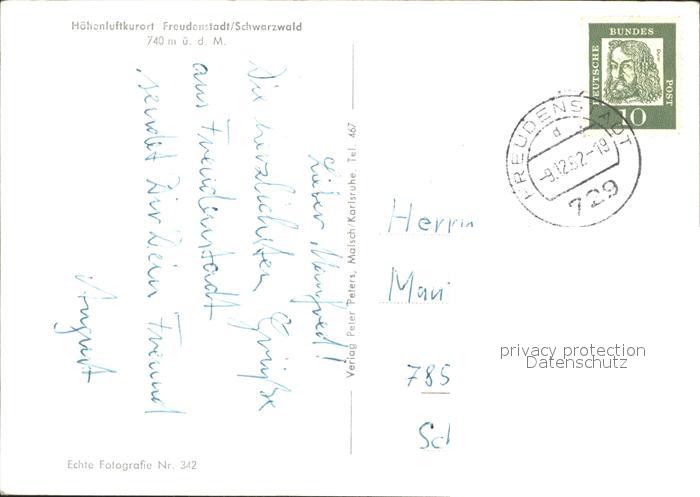 Höhenluftkurort Freudenstadt/Schwarzwald
740 m ü. d. M.
Lieber Manfred!
Die herzlichsten Grüße
aus Freudenstadt
sendet Dir Dein Freund
August
Verlag Peter Peters, Malsch/Karlsruhe. Tel. 467
DEUTSCHE BUNDES POST
Dürer
10
FREUDENSTADT
d
-9.12.62-19
729
Herrn
785
privacy protection
Datenschutz
Echte Fotografie Nr. 342